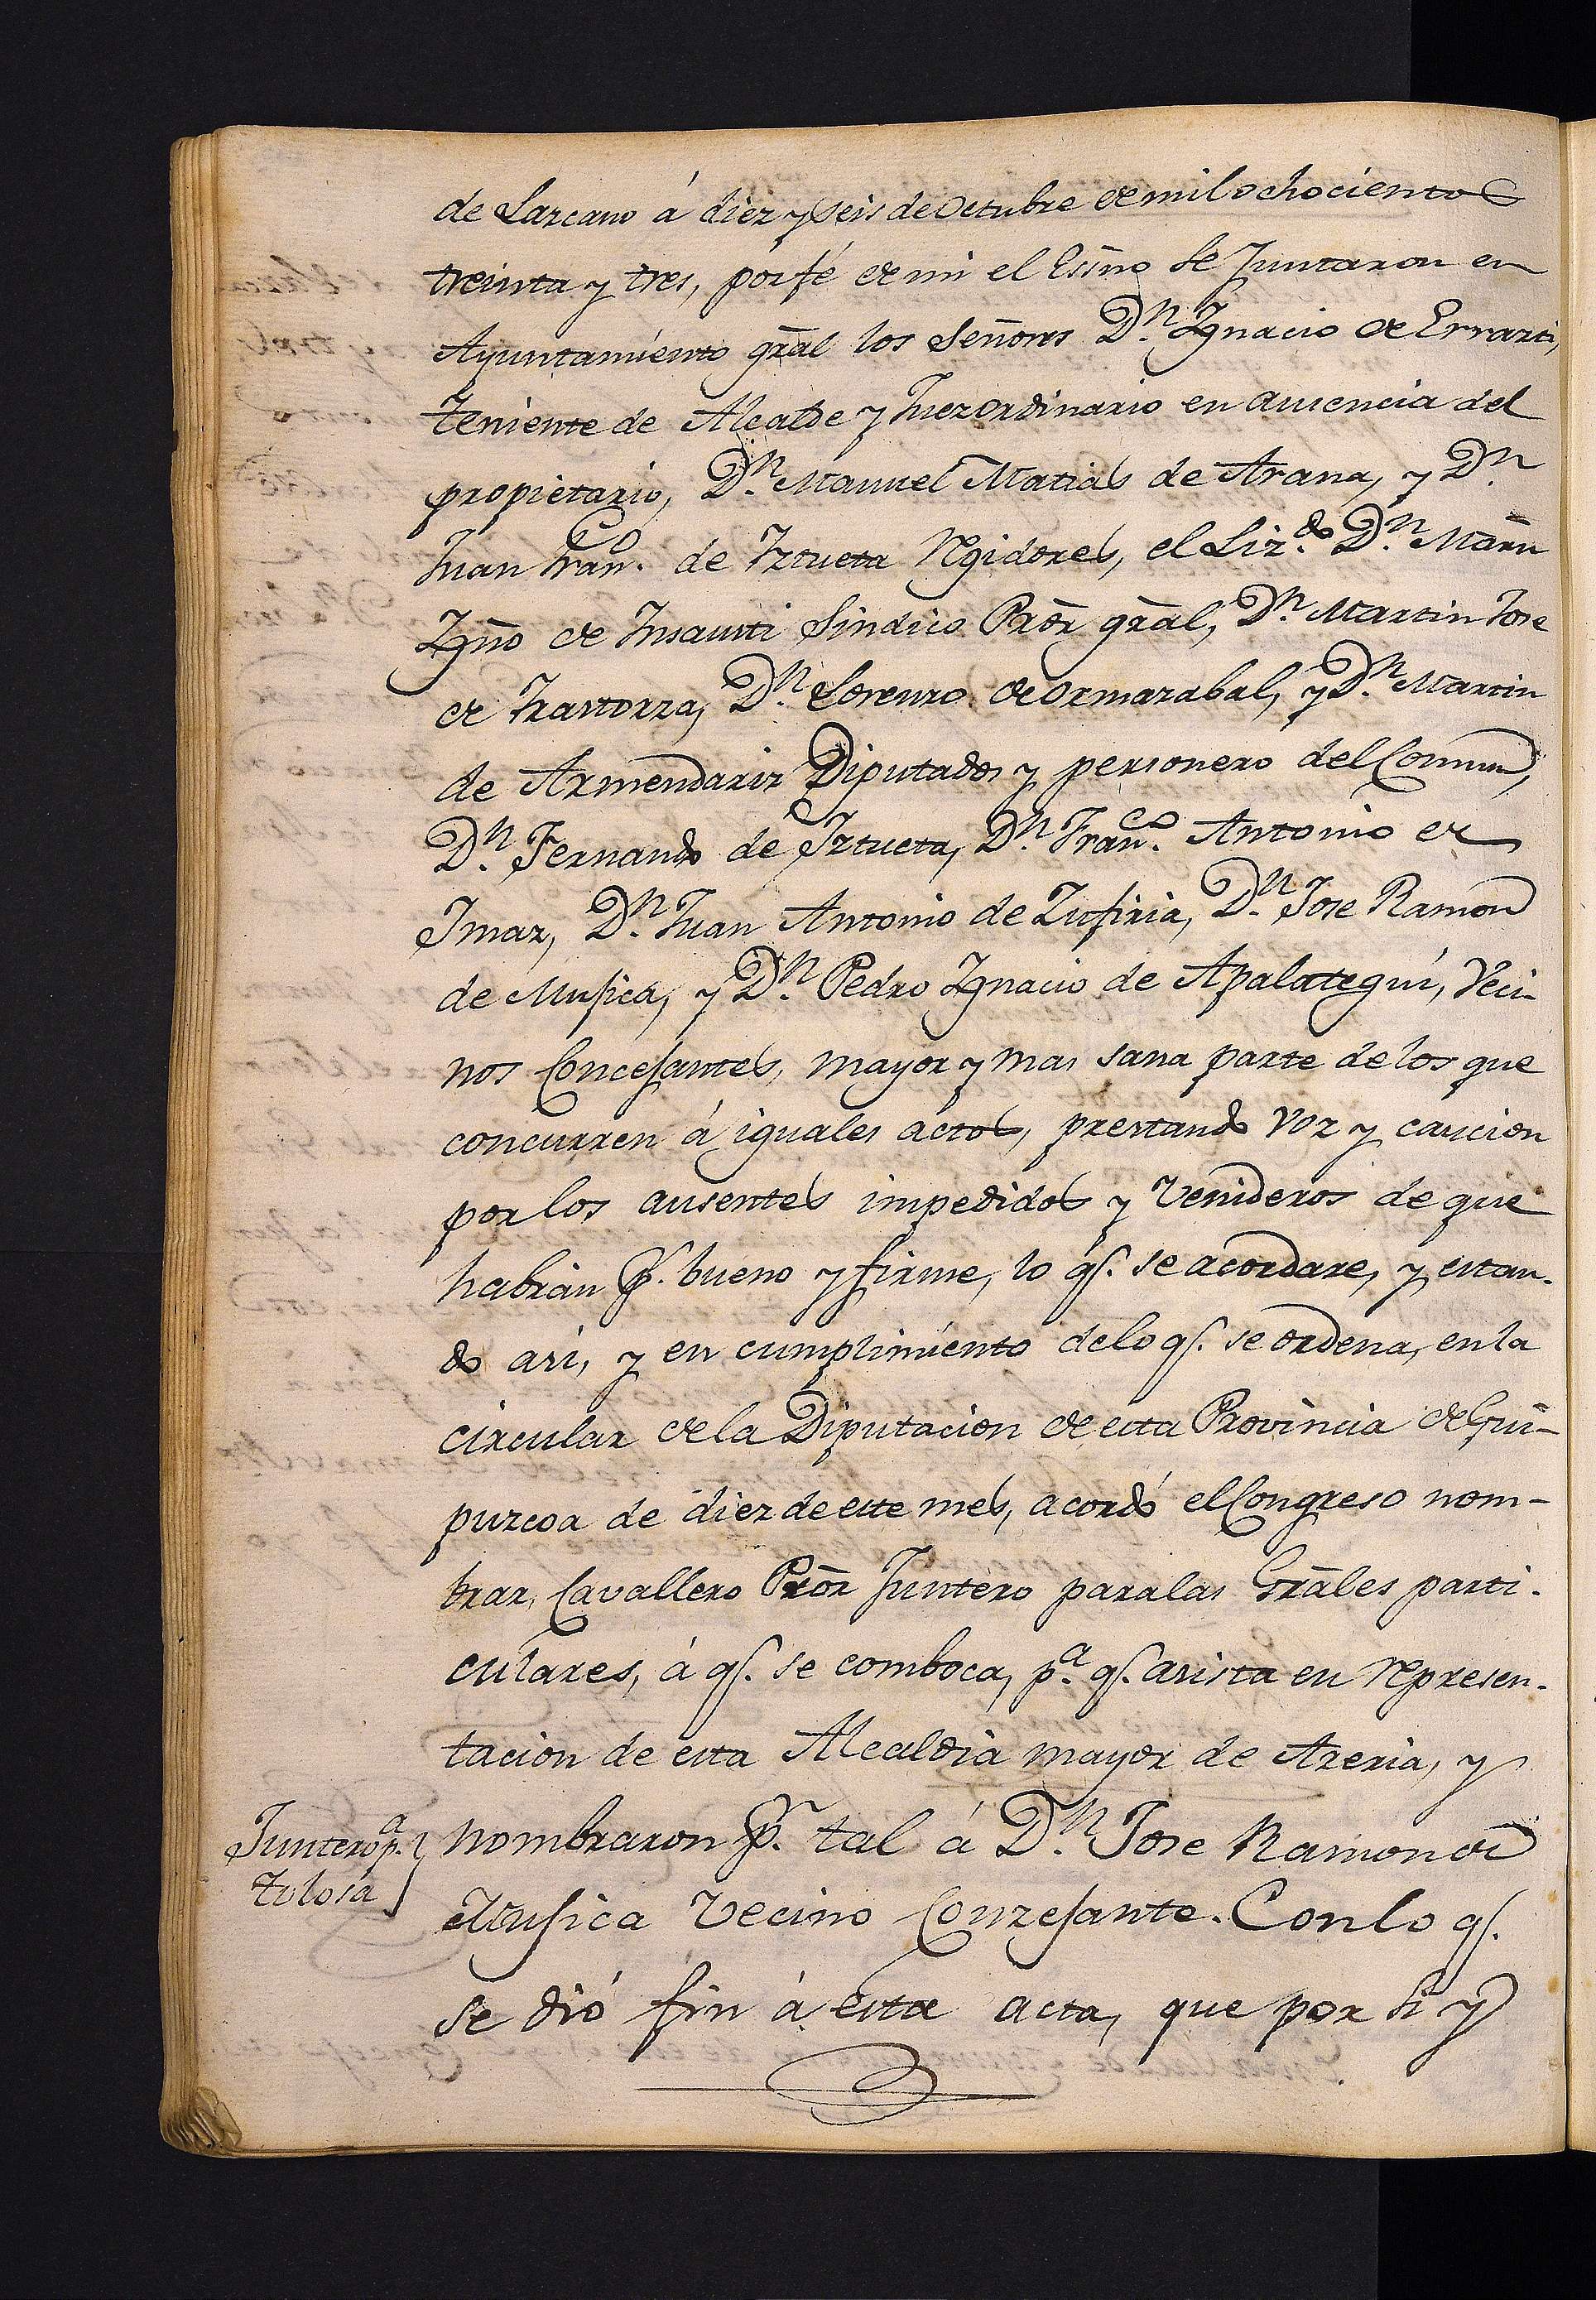 de Lazcano á diez y seis de Octubre de mil ochocientos
treinta y tres, por fé de mi el Essno se Juntaron en
Ayuntamiento gral los Señores Dn. Ygnacio de Errazti,
teniente de Alcalde y Juez ordinario en ausencia del
propietario, Dn. Manuel Matias de Arana, y Dn.
Juan Franco. de Iztueta Rgidores, el Lizdo. Dn. Marn
Ygno de Insausti Sindico Pror gral, Dn. Martin Jose
de Irastorza, Dn. Lorenzo de Ormazabal, y Dn. Martin
de Armendariz Diputados y personero del Comun,
Dn. Fernando de Iztueta, Dn. Franco. Antonio de
Imaz, Dn. Juan Antonio de Zufiria, Dn. Jose Ramon
de Musica, y Dn. Pedro Ygnacio de Apalategui, Veci-
nos Concejantes, mayor y mas sana parte de los que
concurren á iguales actos, prestando voz y caucion
por los ausentes impedidos y venideros de que
habrán pr. bueno y firme, lo q. se acordare, y estan-
do asi, y en cumplimiento de lo q. se ordena, en la
circular de la Diputacion de esta Provincia de Gui-
puzcoa de diez de este mes, acordó el Congreso nom-
brar, Cavallero Pror Juntero para las Grales parti-
culares, á q. se comboca, pa. q. asista en represen-
tacion de esta Alcaldia mayor de Areria, y
Juntero pa.
Tolosa
nombraron pr. tal á Dn. Jose Ramon de
Musica Vecino Conzejante. Con lo q.
se dió fin á esta acta, que por si y